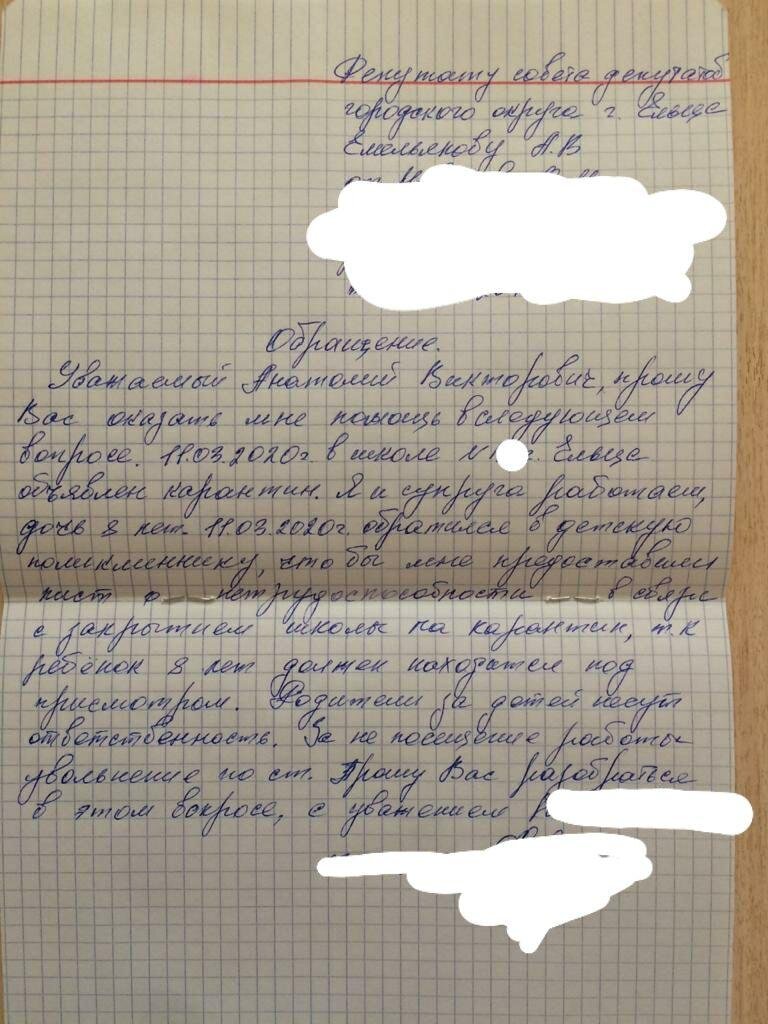 Депутату совета депутатов
городского округа г. Ельца
Емельянову А.В
от
Обращение.
Уважаемый Анатолий Викторович, прошу
Вас оказать мне помощь в следующем
вопросе. 11.03.2020г. в школе N г. Ельца
объявлен карантин. Я и супруга работаем,
дочь 8 лет. 11.03.2020г. обратился в детскую
поликлиннику, что бы мне предоставили
лист о нетрудоспособности в связи
с закрытием школы на карантин, т.к
ребёнок 8 лет должен находится под
присмотром. Родители за детей несут
ответственность. За не посещение работы
увольнение по ст. Прошу Вас разобраться
в этом вопросе, с уважением